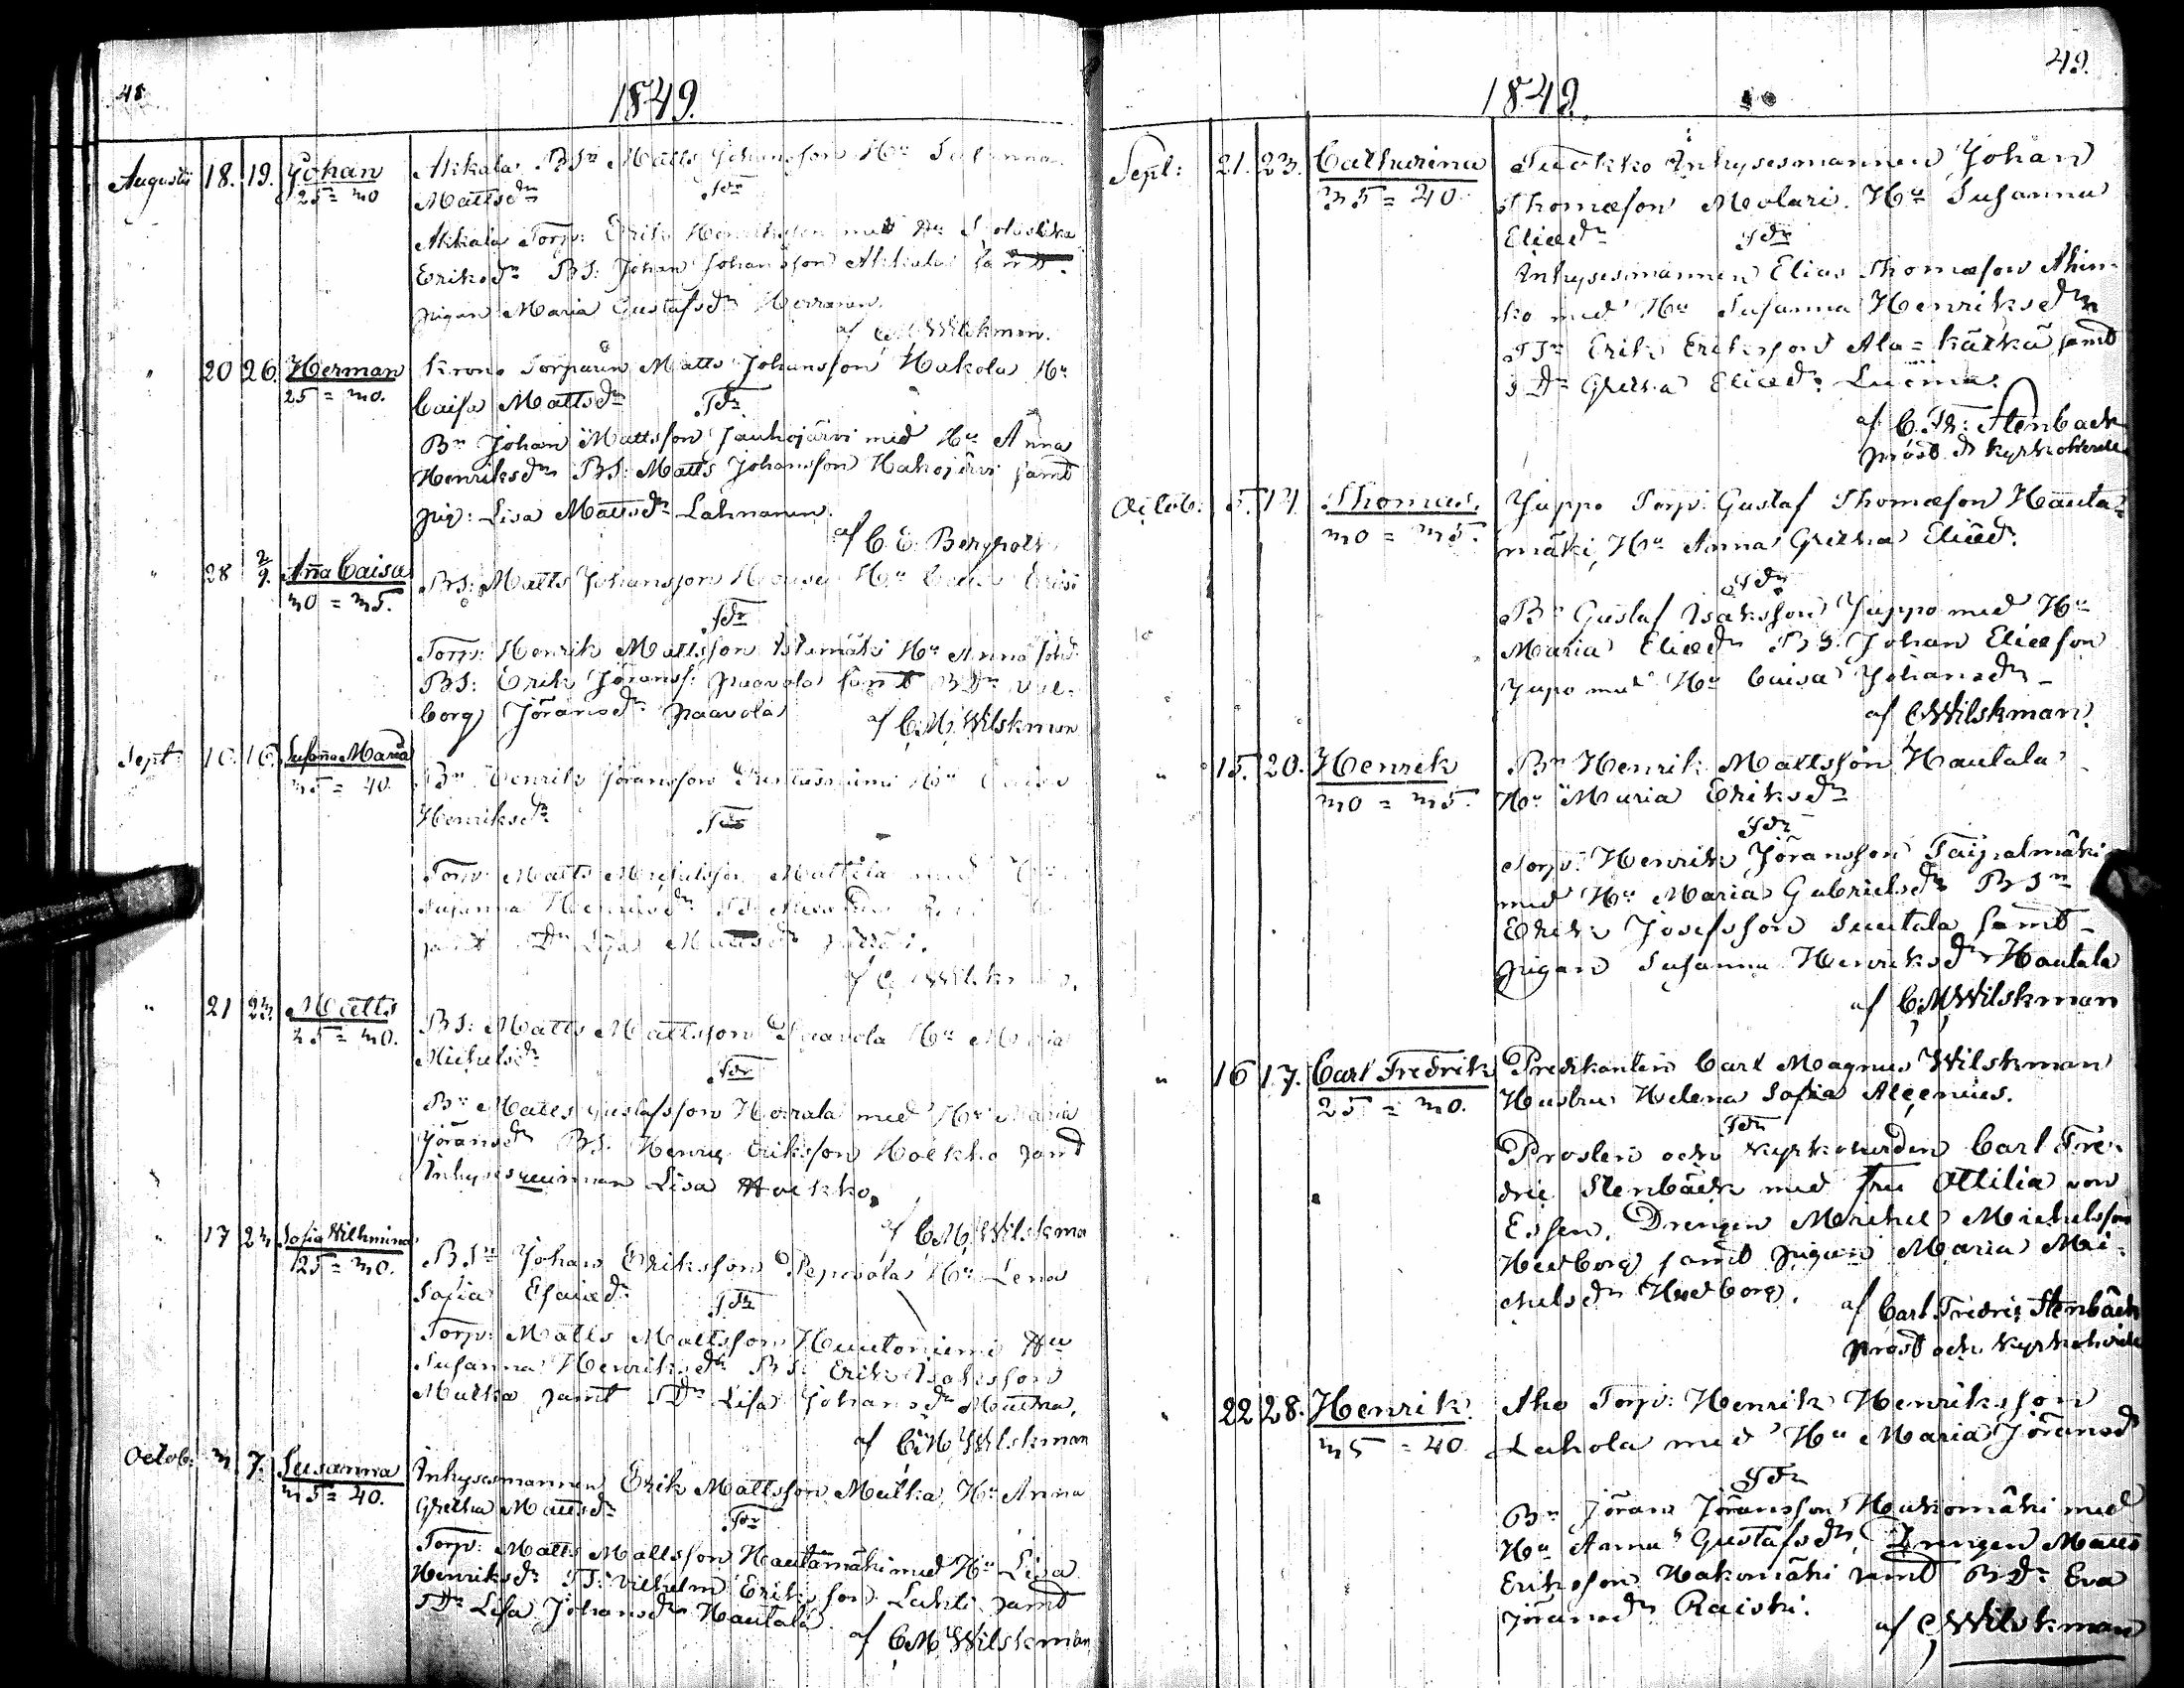 48
1849.
Augusti 18. 19. Johan Akkala BSn Matts Johansson Hu Susanna
25 = 30 Mattsdr Tdr
Akkala Torp: Erik Henriksson med Hu
Eriksdr BS: Johan Johansson Akkala samt
pigan Maria Gustafsdr Herranen.
af C.M. Wilskman.
" 20 26. Herman Krono Torparen Matts Johansson Hakola Hu
25 = 30. Caisa Mattsdr Tdr
Bn Johan Mattsson Jauhojärvi med Hu Anna
Henriksdr BS: Matts Johansson Hakojärvi samt
pig: Lisa Mattsdr Lahnanen.
af C. E. Bergroth
" 28 2/9. Aña Caisa BS: Matts Johansson Hu Caisa
30 = 35. Tdr
Torp: Henrik Mattsson Hu Anna Johd
BS: Erik Joransf: Paavola samt BDr Val-
borg Joransdr Paavola af C.M. Wilskman
Sept: 10. 16. Susaña Maria Bn Henrik Joransson Hu Caisa
35 = 40. Henriksdr Tdr
Torp: Matts Michelsson Mattila med Hu
Susanna Henriksdr
samt Dr Lisa Mattsdr
af C. Wilskman.
" 21 23. Matts BS: Matts Mattsson Paavola Hu Maria
25 = 30. Michelsdr Tdr
Bn Matts Gustafsson Herrala med Hu Maria
Joransdr BS. Henric Eriksson Hoekko samt
Inhyses qvinnan Lisa Hoekko.
af C.M. Wilskman
" 17 23 Sofia Wilhmina BSn Johan Eriksson Hu Lena
25 = 30. Sofia Esaiædr Tdr
Torp: Matts Mattsson Hautoniemi Hu
Susanna Henriksdr BS: Erik Isaksson
Mutka samt TDr Lisa Johansdr Mutka.
af C.M. Wilskman
Octob: 3 7. Susanna Inhysesmannen Erik Mattsson Mutka, Hu Anna
35 = 40. Gretha Mattsdr Tdr
Torp: Matts Mattsson Hautamäki med Hu Lisa
Henriksdr TS: Vilhelm Eriksson Lahti samt
TDr Lisa Johansdr Hautala.
af C.M. Wilskman
49.
1849.
Sept: 21. 23. Catharina Inhysesmannen Johan
35 = 40. Thomæson Molari. Hu Susanna
Eliædr Tdr
Inhysesmannen Elias Thomæson Ahin-
ko med Hu Susanna Henriksdr
TSn Erik Eriksson Ala-Kätkä samt
TDr Gretha Eliædr Luoma.
af C. Fr: Stenback
prost & Kyrkoherde
Octob: 5. 14. Thomas. Juppo Torp: Gustaf Thomæson Hauta-
30 = 35. mäki, Hu Anna Gretha Eliædr.
Tdr
Bn Gustaf Isaksson Juppo med Hu
Maria Eliædr BS. Johan Eliæson
Jupo med Hu Caisa Johansdr
af C Wilskman.
" 15. 20. Henrik Bn Henrik Mattsson Hautala
30 = 35. Hu Maria Eriksdr
Tdr
Torp: Henrik Joransson Taipalmäki
med Hu Maria Gabrielsdr BSn
Erik Josefsson Luutala samt
pigan Susanna Henriksdr Hautala
af C.M. Wilskman
" 16 17. Carl Fredrik Predikanten Carl Magnus Wilskman
25 = 30. Hustru Helena Sofia Alcenius.
Tdr
Prosten och Kyrkoherden Carl Fre-
dric Stenbäck med Fru Ottilia von
Essen, Drengen Michel Michelsson
Hedborg samt pigan Maria Mi-
chelsdr Hedborg. af Carl Fredric Stenbäck
prost och Kyrkoherde
" 22 28. Henrik Aho Torp: Henrik Henriksson
35 = 40 Lahola med Hu Maria Joransdr
Tdr
Bn Joran Joransson Hakomäki med
Hu Anna Gustafsdr, Drengen Matts
Eriksson Hakomäki samt BDr Eva
Joransdr Raiski. af C, Wilskman